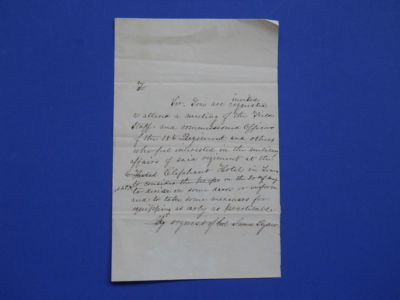 To
Sir. You are invited requested
to attend a meeting of the Field
Staff and commissioned Officers
of the Regiment and others
who feel interested in the
affairs of said regiment at the
Elephant Hotel in
to consider the in the
to decide on some dares or uniform
and to take some measures for
equipping as early as practicable
By request of Col James